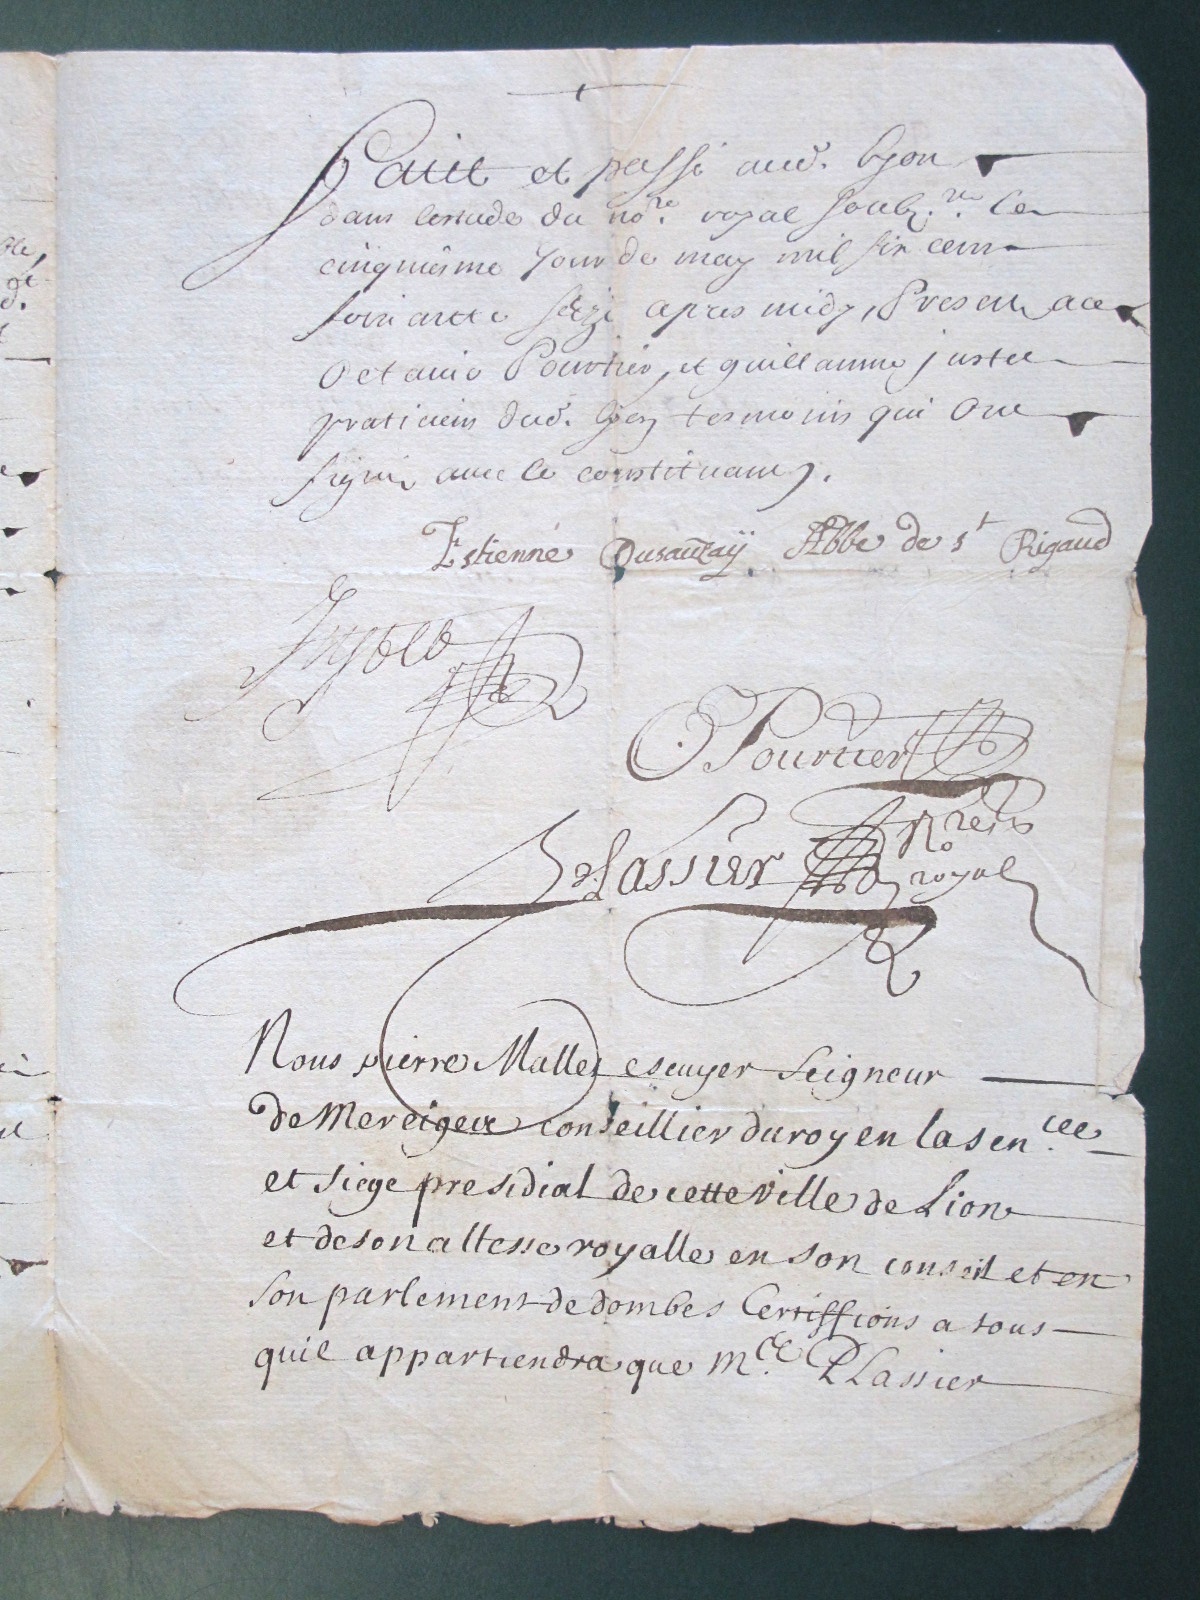 Faict et passé aud. Lyon
dans lestude du no.re royal soubz.né le
cinquiesme jour de may mil six cent
soixante seize apres midy, Presentz
Octavio Pourtier, et guillaume juste
praticiens dud. Lyon tesmoins qui ont
signé avec le constituant.
Estienne Dusauzaÿ Abbé de st Rigaud
Juste
O Pourtier
delassier No.re
royal
Nous pierre Mallet escuyer seigneur
de conseillier du roy en la sen.cée
et siege presidial de cette ville de Lion
et de son altesse royalle en son conseil et en
son parlement de dombes Certiffions a tous
quil appartiendra que M.re DeLassier